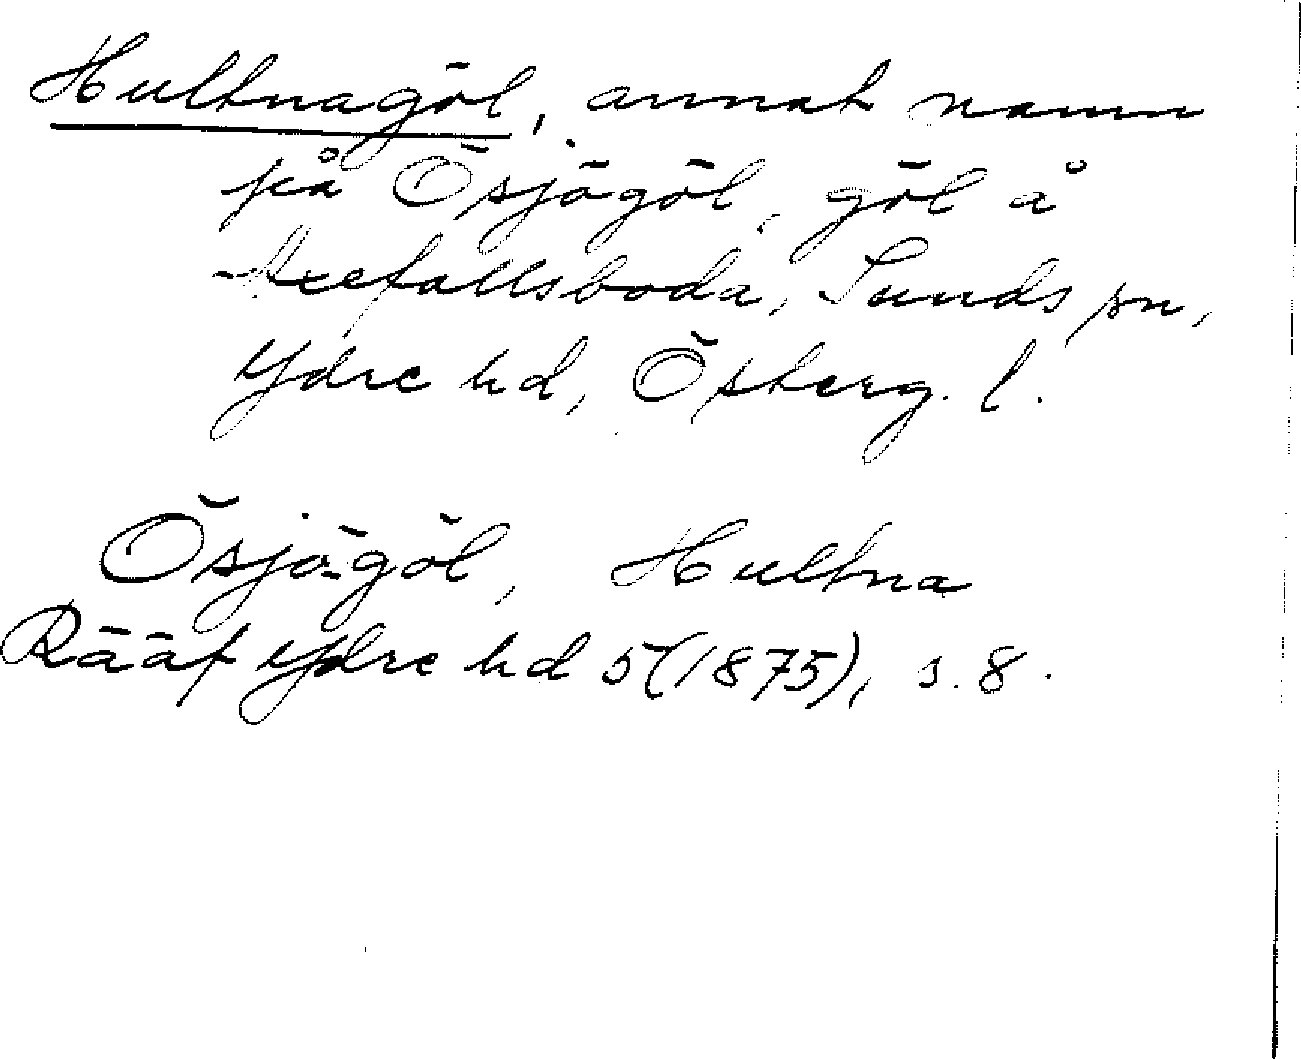 Hultnagöl, annat namn
på Ösjögöl, göl å
Axefallsboda, Sunds sn,
Ydre hd, Österg. l.
Ösjö-göl, Hultna
Rääf Ydre hd 5 (1875), s. 8.